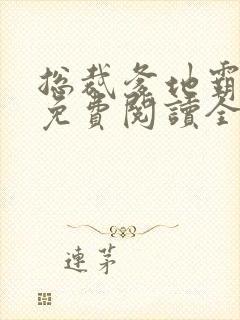 总裁爹地霸
免費閱讀全
連茅